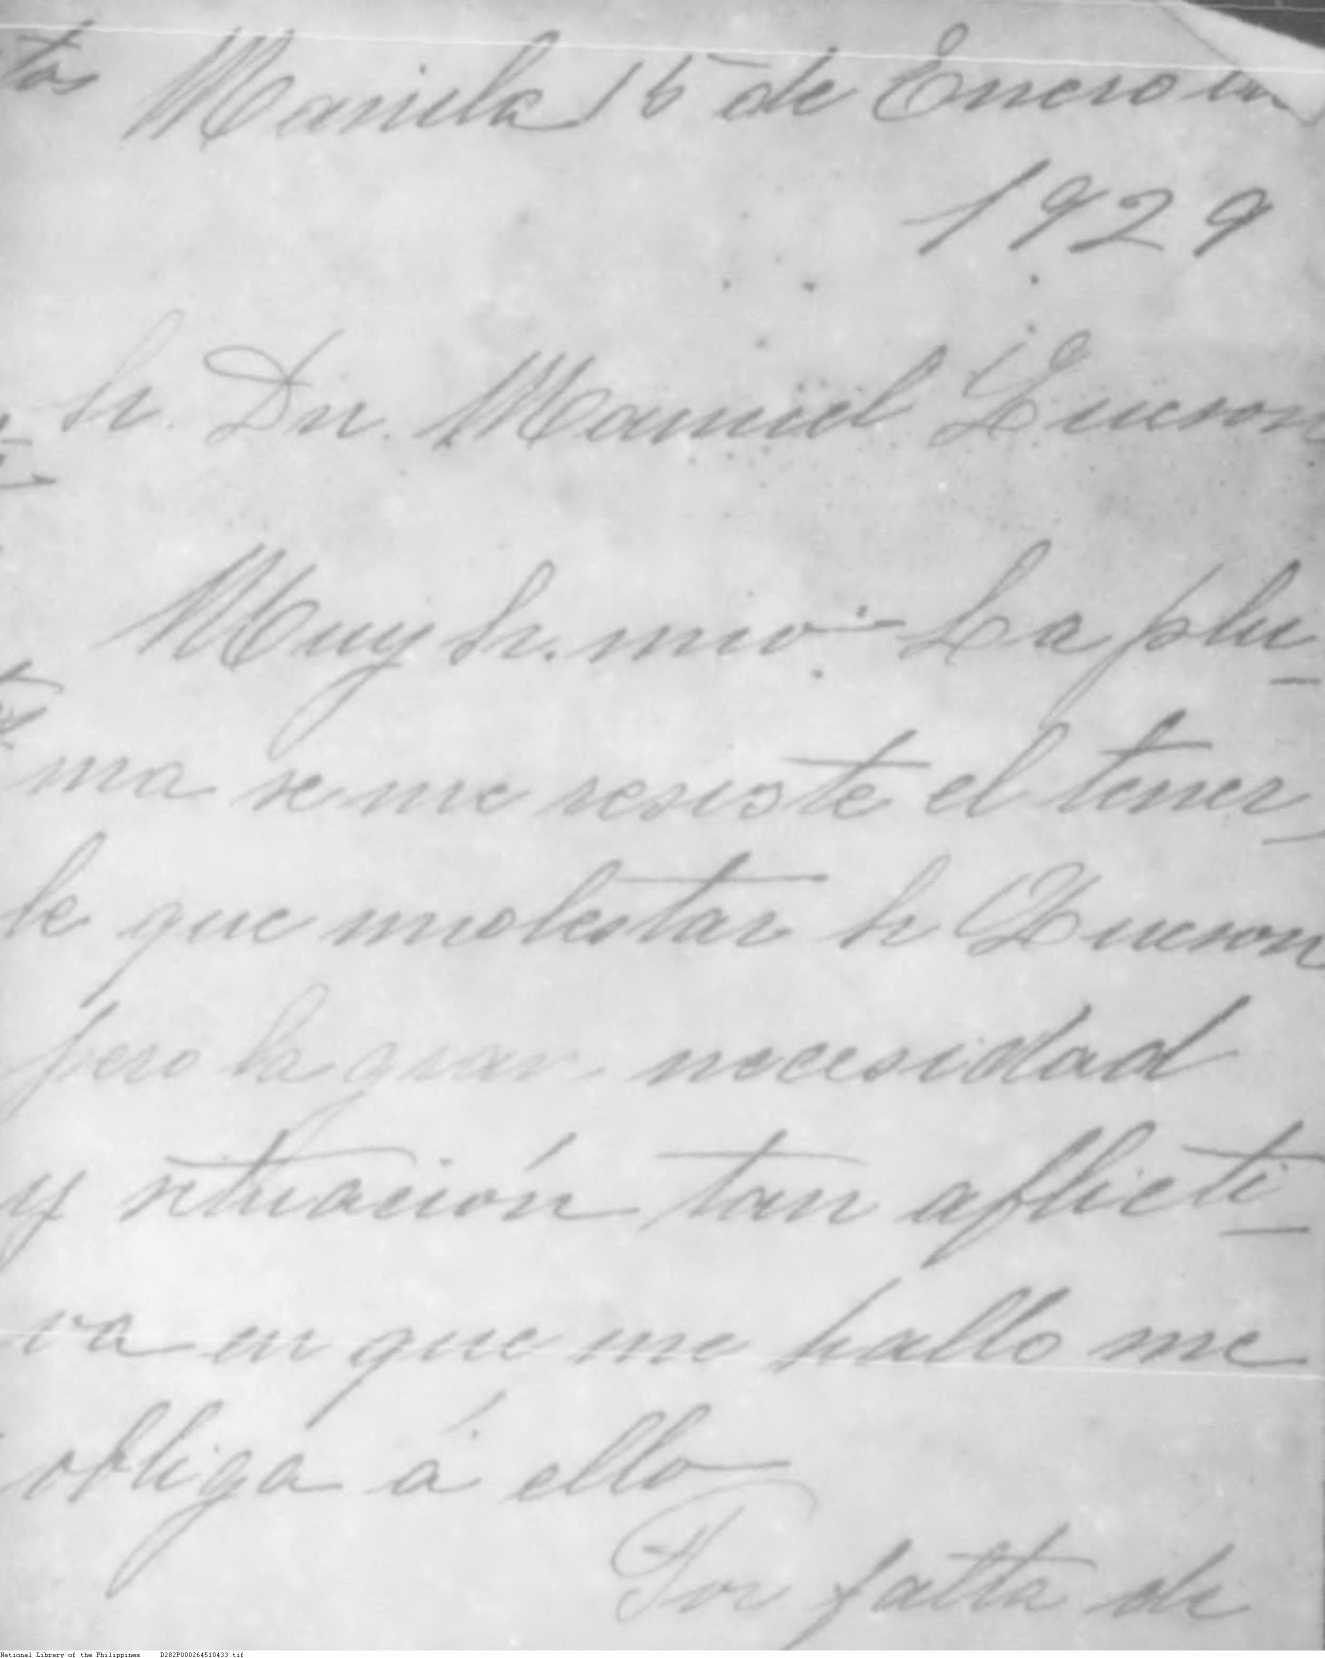 Manila 15 de Enero
1929
Sr. Dn. Manuel Quezon
Muy Sr. mio - La plu-
ma se me resiste el tener-
le que molestar Sr Quezon
pero la gran necesidad
y situación tan aflicti-
va en que me hallo me
obliga á ello
Por falta de
National Library of the Philippines D282P000264510433.tif